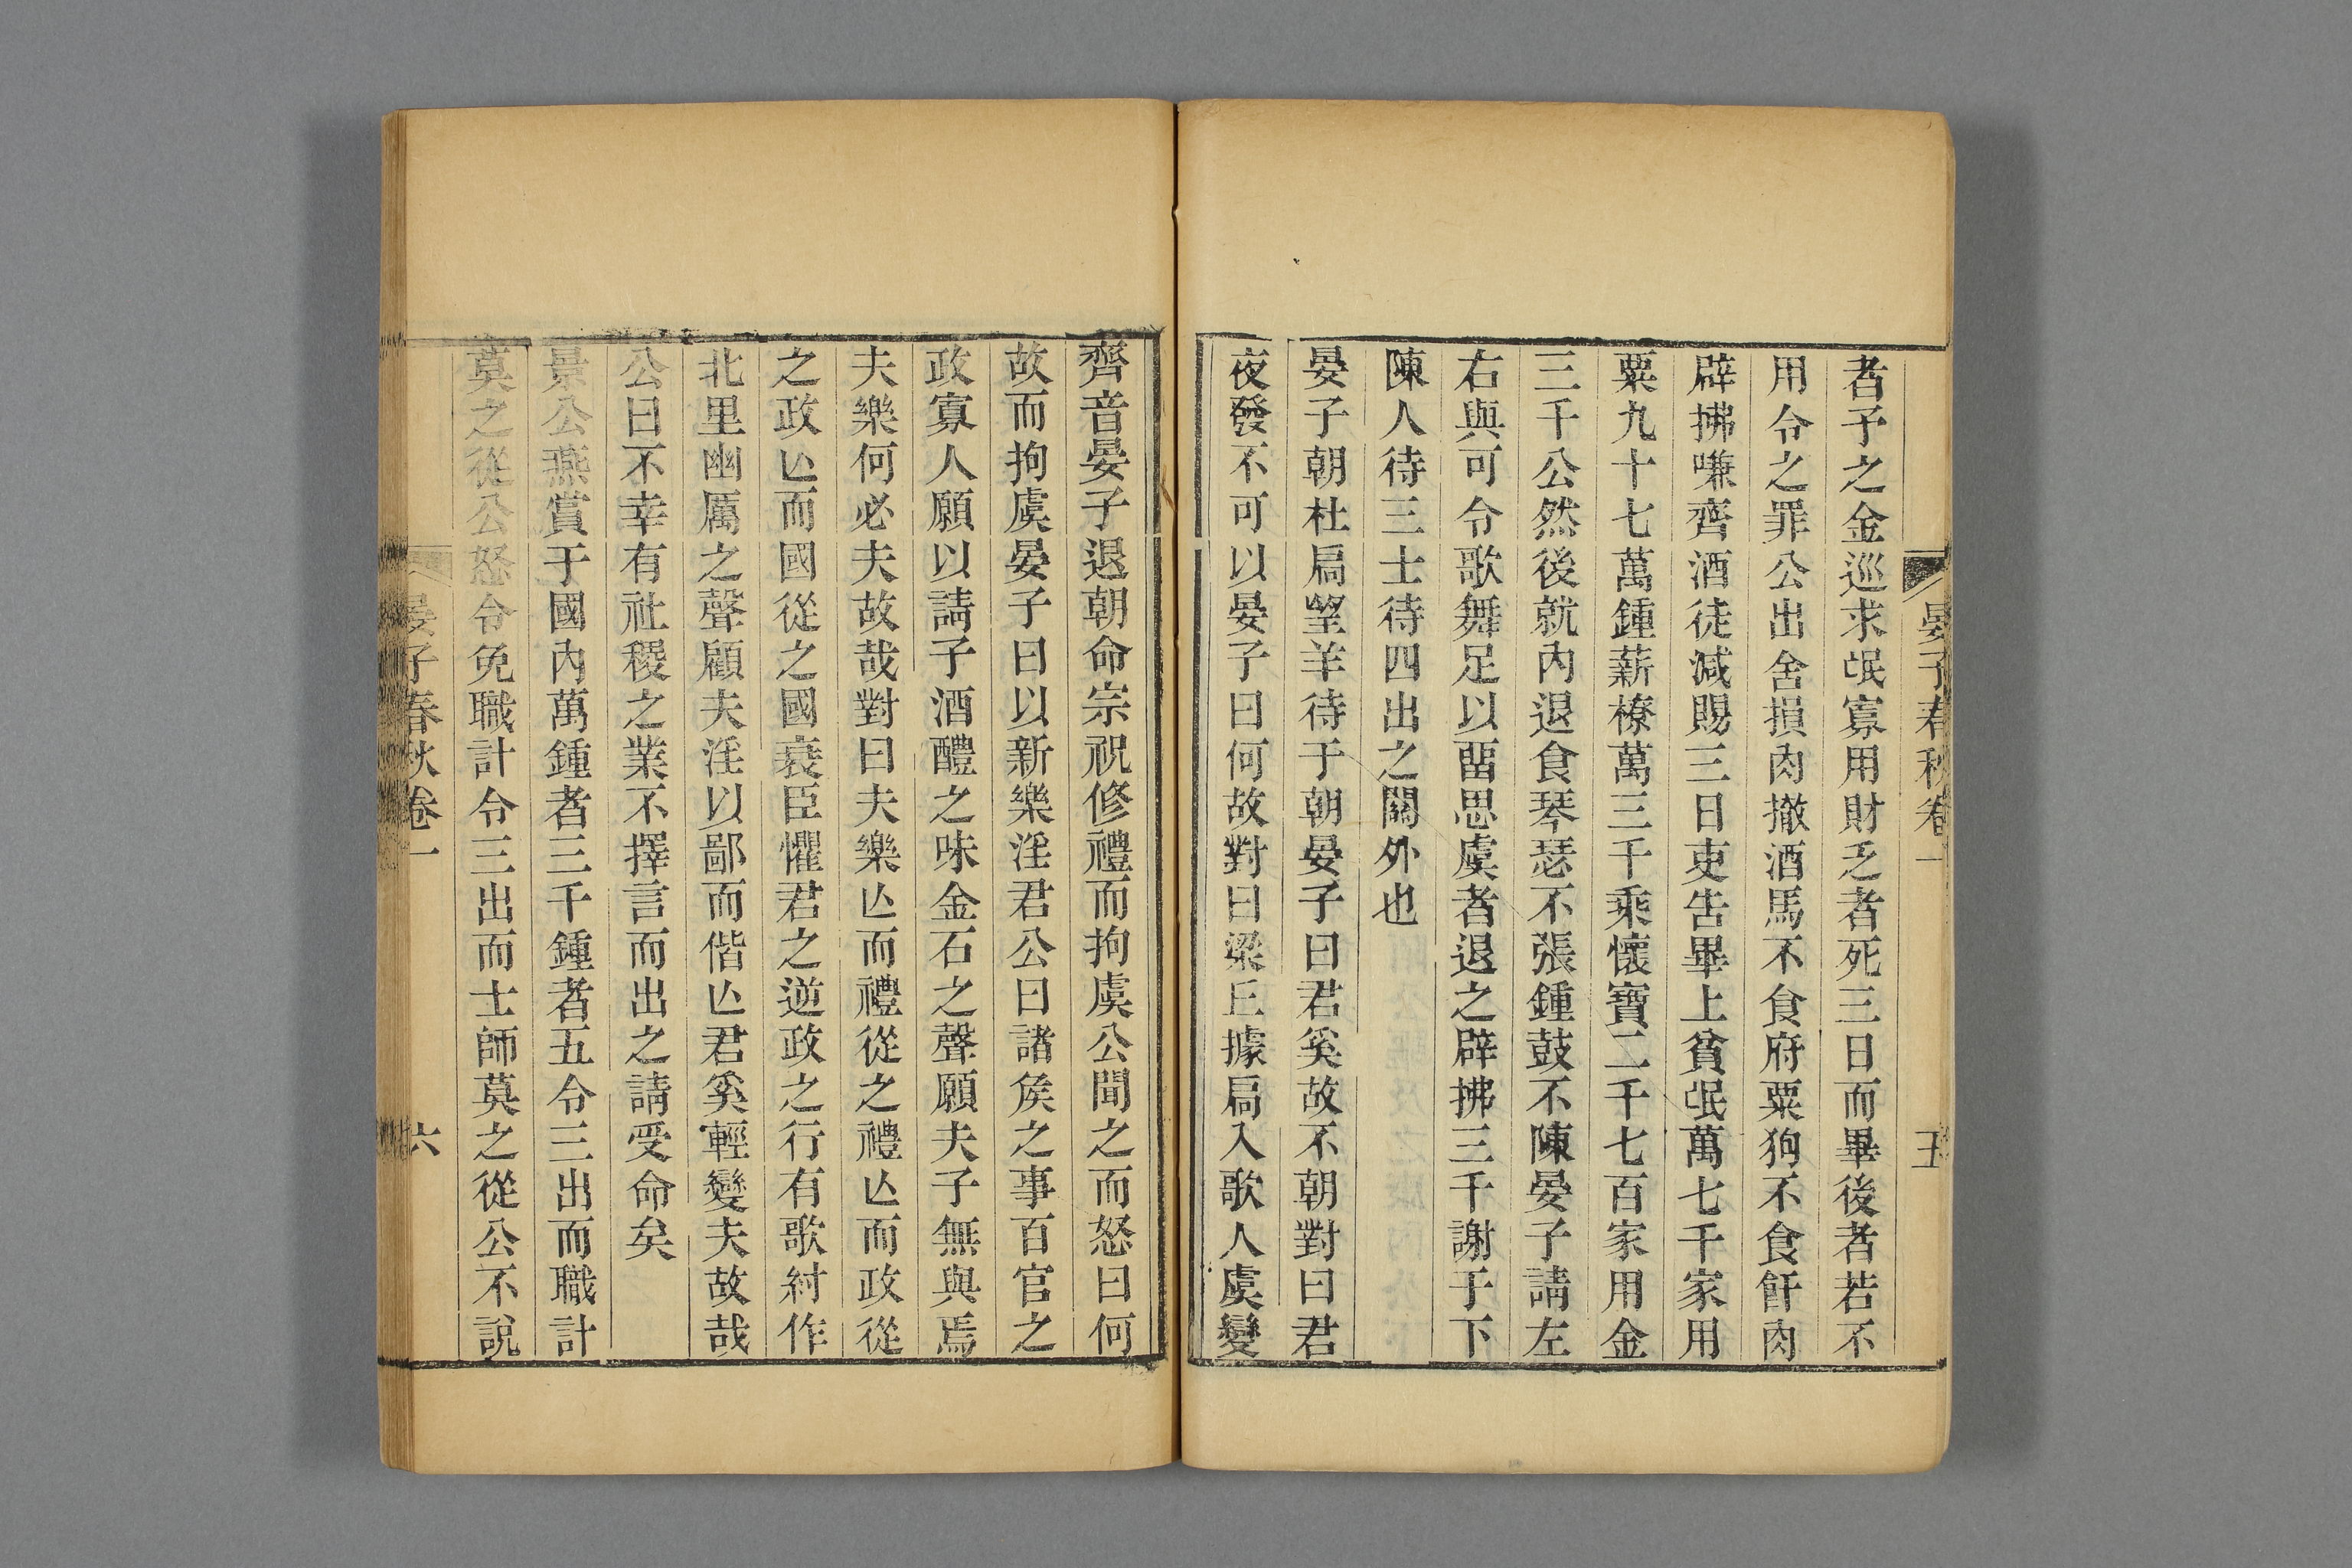 晏子春秋卷一
五
者予之金巡求氓寡用財乏者死三日而畢後者若不
用令之罪公出舍損肉撤酒馬不食府粟狗不食飦肉
辟拂嗛齊酒徒減賜三日吏告畢上貧氓萬七千家用
粟九十七萬鍾薪橑萬三千乘懷寶二千七百家用金
三千公然後就內退食琴瑟不張鍾鼓不陳晏子請左
右與可令歌舞足以畱思虞者退之辟拂三千謝于下
陳人待三士待四出之關外也
晏子朝杜扃望羊待于朝晏子曰君奚故不朝對曰君
夜發不可以晏子曰何故對曰梁丘據扃入歌人虞變
齊音晏子退朝命宗祝修禮而拘虞公聞之而怒曰何
故而拘虞晏子曰以新樂淫君公曰諸矦之事百官之
政寡人願以請子酒醴之味金石之聲願夫子無與焉
夫樂何必夫故哉對曰夫樂亾而禮從之禮亾而政從
之政亾而國從之國衰臣懼君之逆政之行有歌紂作
北里幽厲之聲顧夫淫以鄙而偕亾君奚輕變夫故哉
公曰不幸有社稷之業不擇言而出之請受命矣
景公燕賞于國內萬鍾者三千鍾者五令三出而職計
莫之從公怒令免職計令三出而士師莫之從公不說
晏子春秋卷一
六